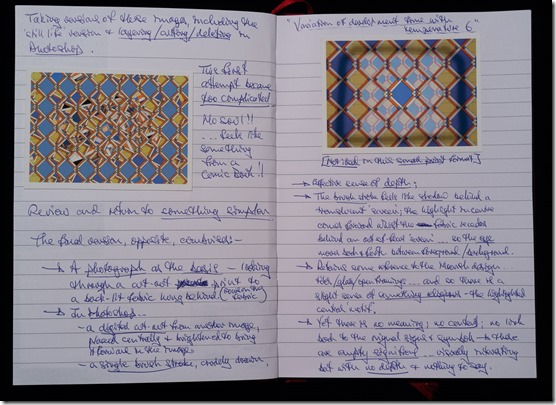 Taking versions of these images, including the
still life version & layering/cutting/deleting in
Photoshop.
This first
attempt became
too complicated
No soul!!
... feels like
something
from a
Comic Book!!
Review and return to something simpler
The final version, opposite, combines:-
→ A photograph as the basis - looking
through a cut out point to
a back-lit fabric hung behind (
fabric)
→ In Photoshop...
- a digital cut-out from another image,
placed centrally & brightened to bring
it forward in the image
- a single brush stroke, crudely drawn,
"Variation of development time with
temperature 6"
[Not as in this small print format]
→ Effective sense of depth;
→ The brush stroke feels like the shadow behind a
translucent screen; the highlight in centre
comes forward whilst the fabric recedes
behind an out of focus screen ... so the eye
moves back & forth between foreground/background.
→ Retains some reference to the Moorish design
tiles/glass/openings ... and so there is a
slight sense of something religious - the highlighted
central motif,
→ Yet there is no meaning; no context; no link
back to the original signs & symbols → these
are empty signifiers ... visually interesting
but with no depth & nothing to say.